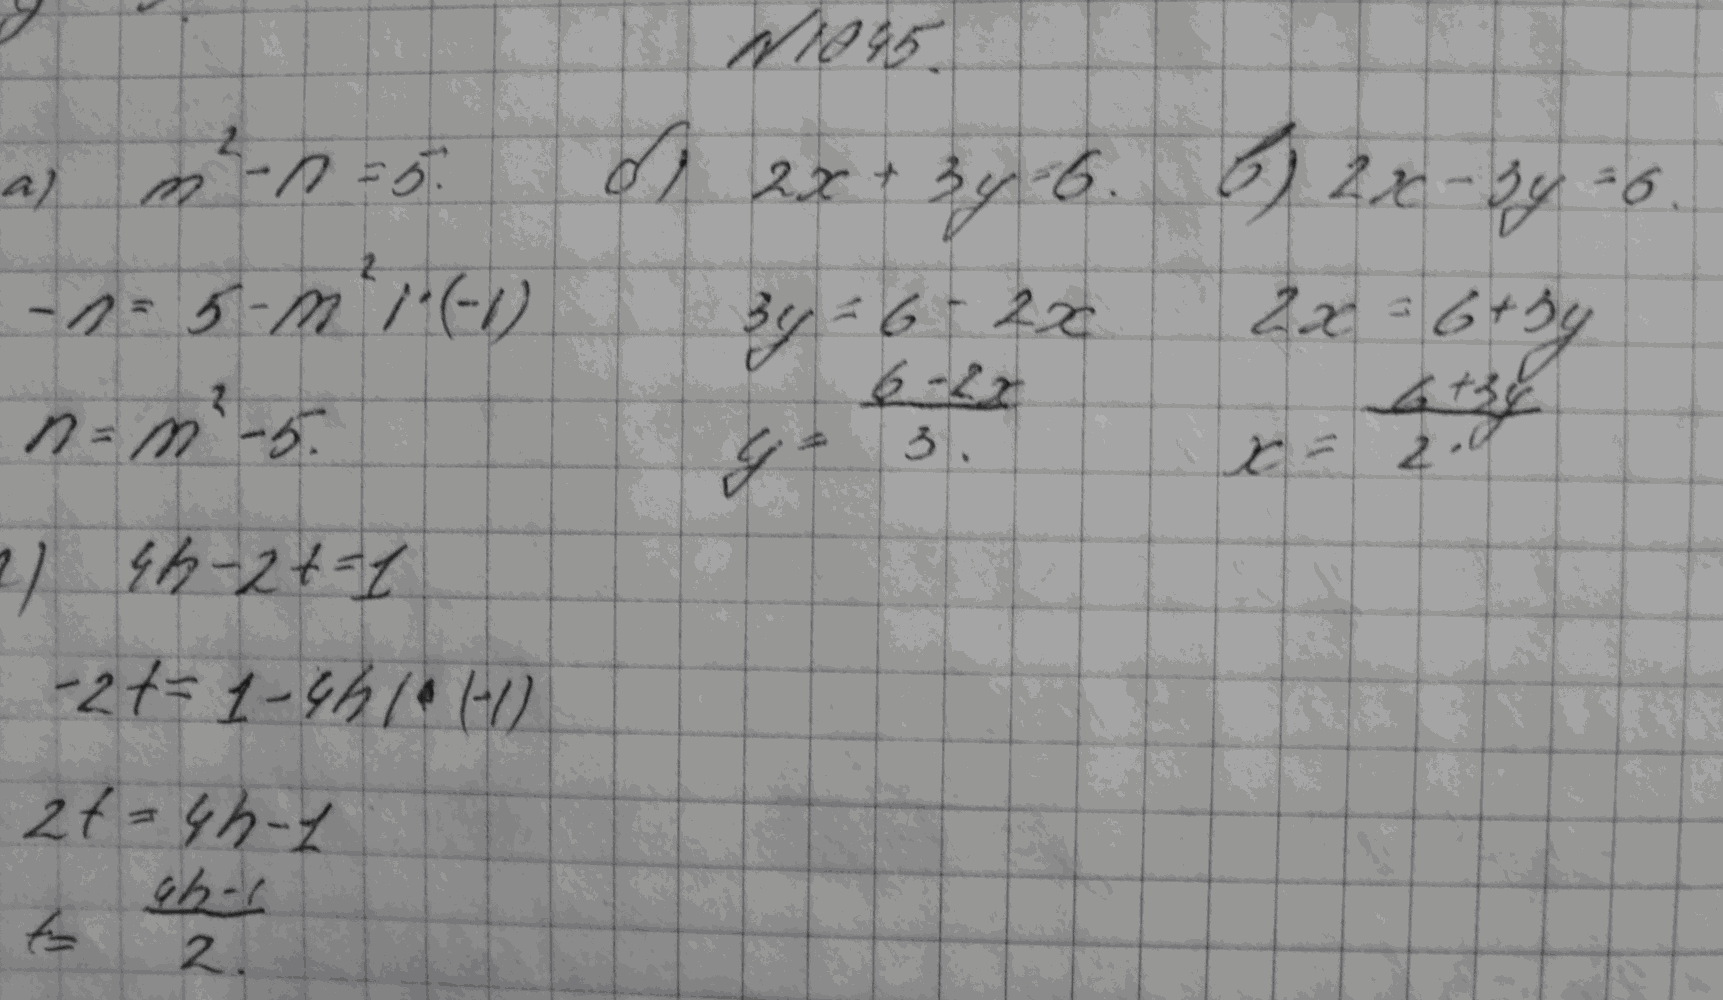 №1045.
а) m² - n = 5.
-n = 5 - m² |·(-1)
n = m² - 5.
б) 2x + 3y = 6.
3y = 6 - 2x
y = (6 - 2x)/3.
в) 2x - 3y = 6.
2x = 6 + 3y
x = (6 + 3y)/2.
г) 4h - 2t = 1
-2t = 1 - 4h |·(-1)
2t = 4h - 1
t = (4h - 1)/2.